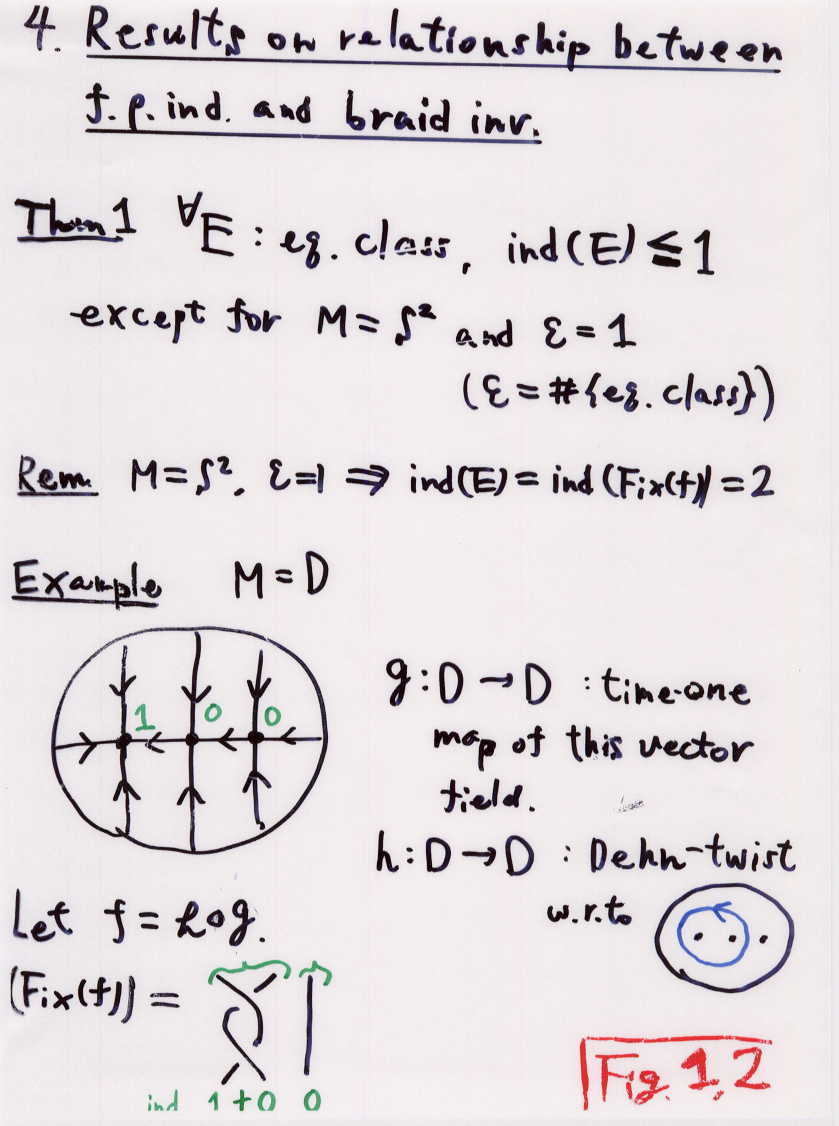 4. Results on relationship between
f.p.ind. and braid inv.
Thm 1 ∀E : eq. class, ind(E) ≦ 1
except for M = S² and ℰ = 1
(ℰ = #{eq. class})
Rem. M = S², ℰ=1 ⇒ ind(E) = ind(Fix(f)) = 2
Example M = D
1 0 0
g : D → D : time-one
map of this vector
field.
h : D → D : Dehn-twist
w.r.to
Let f = h∘g.
(Fix(f)) =
ind 1 + 0 0
Fig. 1, 2